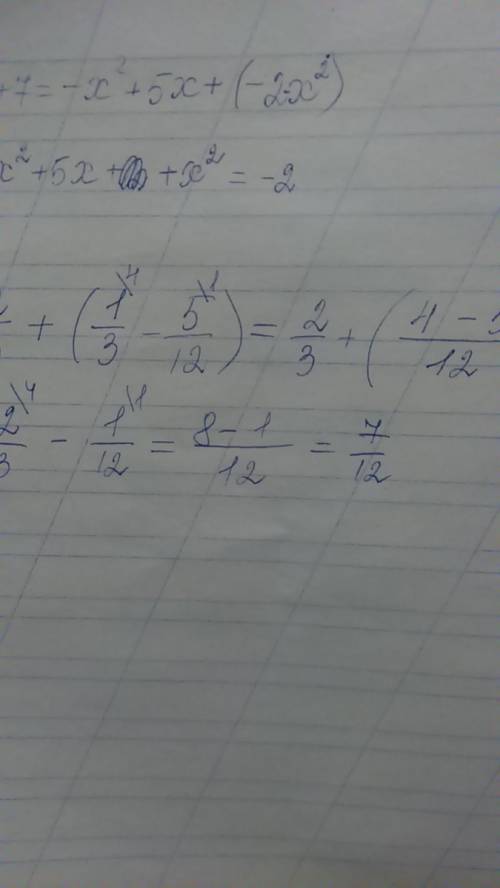 +7 = -x² + 5x + (-2x²)
x² + 5x + + x² = -2
+ (1\4/3 - 5\1/12) = 2/3 + (4 - 5/12
2\4/3 - 1\1/12 = 8-1/12 = 7/12